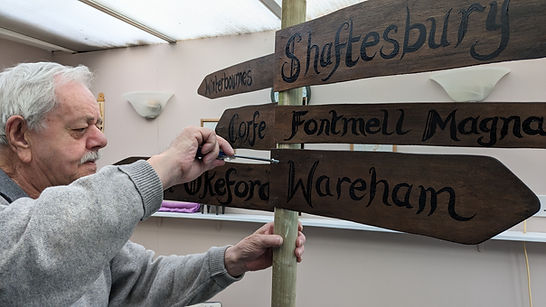 Shaftesbury
Winterbournes
Fontmell Magna
Corfe
Wareham
Okeford